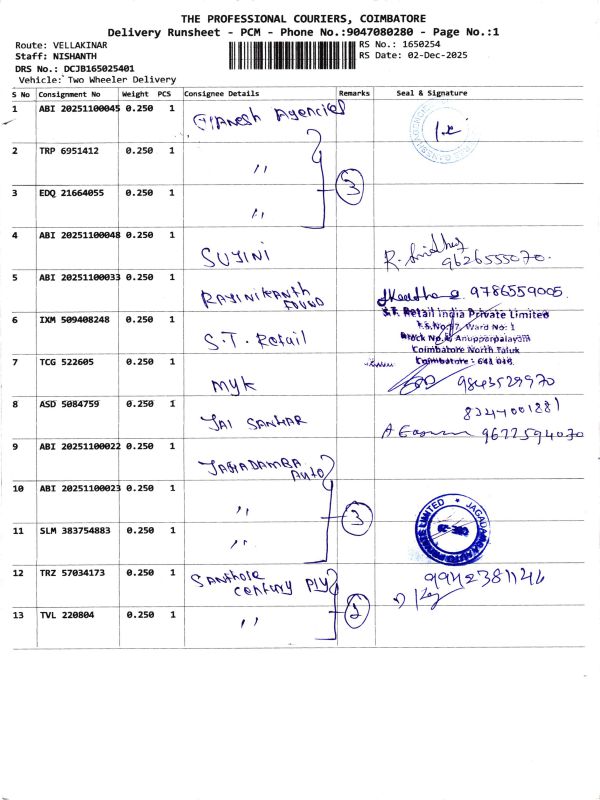 THE PROFESSIONAL COURIERS, COIMBATORE
Delivery Runsheet - PCM - Phone No.:9047080280 - Page No.:1
Route: VELLAKINAR RS No.: 1650254
Staff: NISHANTH RS Date: 02-Dec-2025
DRS No.: DCJB165025401
Vehicle: Two Wheeler Delivery
S No Consignment No Weight PCS Consignee Details Remarks Seal & Signature
1 ABI 20251100045 0.250 1 Ganesh Agencies
2 TRP 6951412 0.250 1 〃 3
3 EDQ 21664055 0.250 1 〃
4 ABI 20251100048 0.250 1 SUJINI 9626555070.
5 ABI 20251100033 0.250 1 RAJINIKANTH 9786559005.
6 IXM 509408248 0.250 1 S.T. Retail
S.T. Retail India Private Limited
Ward No: 1
Anupperpalayam
Coimbatore North Taluk
Coimbatore
7 TCG 522605 0.250 1 MYK 9843529970
8 ASD 5084759 0.250 1 JAI SANKAR 8344001881
9677594030
9 ABI 20251100022 0.250 1 JAGADAMBA Auto
10 ABI 20251100023 0.250 1 〃 3
11 SLM 383754883 0.250 1 〃
12 TRZ 57034173 0.250 1 century PLY 9942381146
13 TVL 220804 0.250 1 〃 2